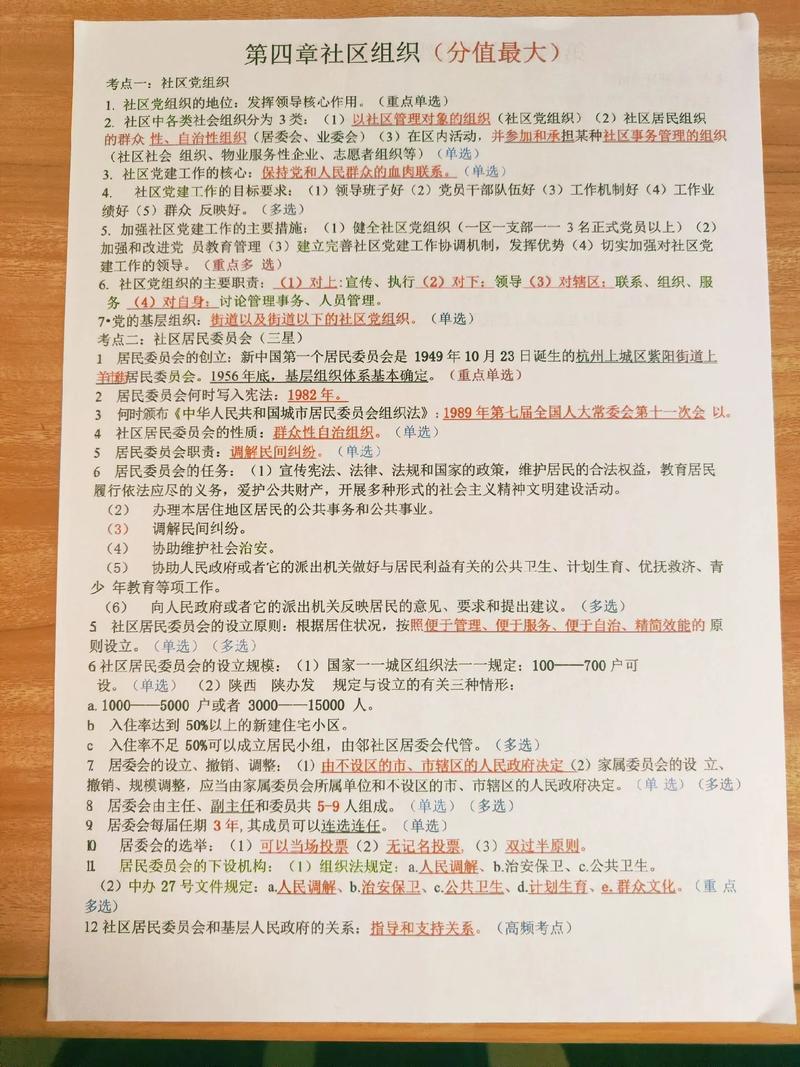 第四章社区组织（分值最大）
考点一：社区党组织
1. 社区党组织的地位：发挥领导核心作用。（重点单选）
2. 社区中各类社会组织分为 3 类：（1）以社区管理对象的组织（社区党组织）（2）社区居民组织
的群众 性、自治性组织（居委会、业委会）（3）在区内活动，并参加和承担某种社区事务管理的组织
（社区社会 组织、物业服务性企业、志愿者组织等）（单选）
3. 社区党建工作的核心：保持党和人民群众的血肉联系。（单选）
4. 社区党建工作的目标要求：（1）领导班子好（2）党员干部队伍好（3）工作机制好（4）工作业
绩好（5）群众 反映好。（多选）
5. 加强社区党建工作的主要措施：（1）健全社区党组织（一区一支部一一 3 名正式党员以上）（2）
加强和改进党 员教育管理（3）建立完善社区党建工作协调机制，发挥优势（4）切实加强对社区党
建工作的领导。（重点多 选）
6. 社区党组织的主要职责：（1）对上:宣传、执行（2）对下；领导（3）对辖区；联系、组织、服
务（4）对自身；讨论管理事务、人员管理。
7•党的基层组织：街道以及街道以下的社区党组织。（单选）
考点二：社区居民委员会（三星）
1 居民委员会的创立：新中国第一个居民委员会是 1949 年 10 月 23 日诞生的杭州上城区紫阳街道上
羊市街居民委员会。1956 年底，基层组织体系基本确定。（重点单选）
2 居民委员会何时写入宪法：1982 年。
3 何时颁布《中华人民共和国城市居民委员会组织法》：1989 年第七届全国人大常委会第十一次会 以。
4 社区居民委员会的性质：群众性自治组织。（单选）
5 居民委员会职责：调解民间纠纷。（单选）
6 居民委员会的任务：（1）宣传宪法、法律、法规和国家的政策，维护居民的合法权益，教育居民
履行依法应尽的义务，爱护公共财产，开展多种形式的社会主义精神文明建设活动。
（2） 办理本居住地区居民的公共事务和公共事业。
（3） 调解民间纠纷。
（4） 协助维护社会治安。
（5） 协助人民政府或者它的派出机关做好与居民利益有关的公共卫生、计划生育、优抚救济、青
少 年教育等项工作。
（6） 向人民政府或者它的派出机关反映居民的意见、要求和提出建议。（多选）
5. 社区居民委员会的设立原则：根据居住状况，按照便于管理、便于服务、便于自治、精简效能的 原
则设立。（单选）（多选）
6 社区居民委员会的设立规模：（1）国家一一城区组织法一一规定：100——700 户可
设。（单选）（2）陕西 陕办发 规定与设立的有关三种情形：
a. 1000——5000 户或者 3000——15000 人。
b 入住率达到 50%以上的新建住宅小区。
c 入住率不足 50%可以成立居民小组，由邻社区居委会代管。（多选）
7. 居委会的设立、撤销、调整：（1）由不设区的市、市辖区的人民政府决定（2）家属委员会的设 立、
撤销、规模调整，应当由家属委员会所属单位和不设区的市、市辖区的人民政府决定。（单 选）（多选）
8 居委会由主任、副主任和委员共 5-9 人组成。（单选）（多选）
9. 居委会每届任期 3 年,其成员可以连选连任。（单选）
10 居委会的选举：（1）可以当场投票（2）无记名投票,（3）双过半原则。
11. 居民委员会的下设机构：（1）组织法规定：a.人民调解、b.治安保卫、c.公共卫生。
（2）中办 27 号文件规定：a.人民调解、b.治安保卫、c.公共卫生、d.计划生育、e.群众文化。（重 点
多选）
12 社区居民委员会和基层人民政府的关系：指导和支持关系。（高频考点）